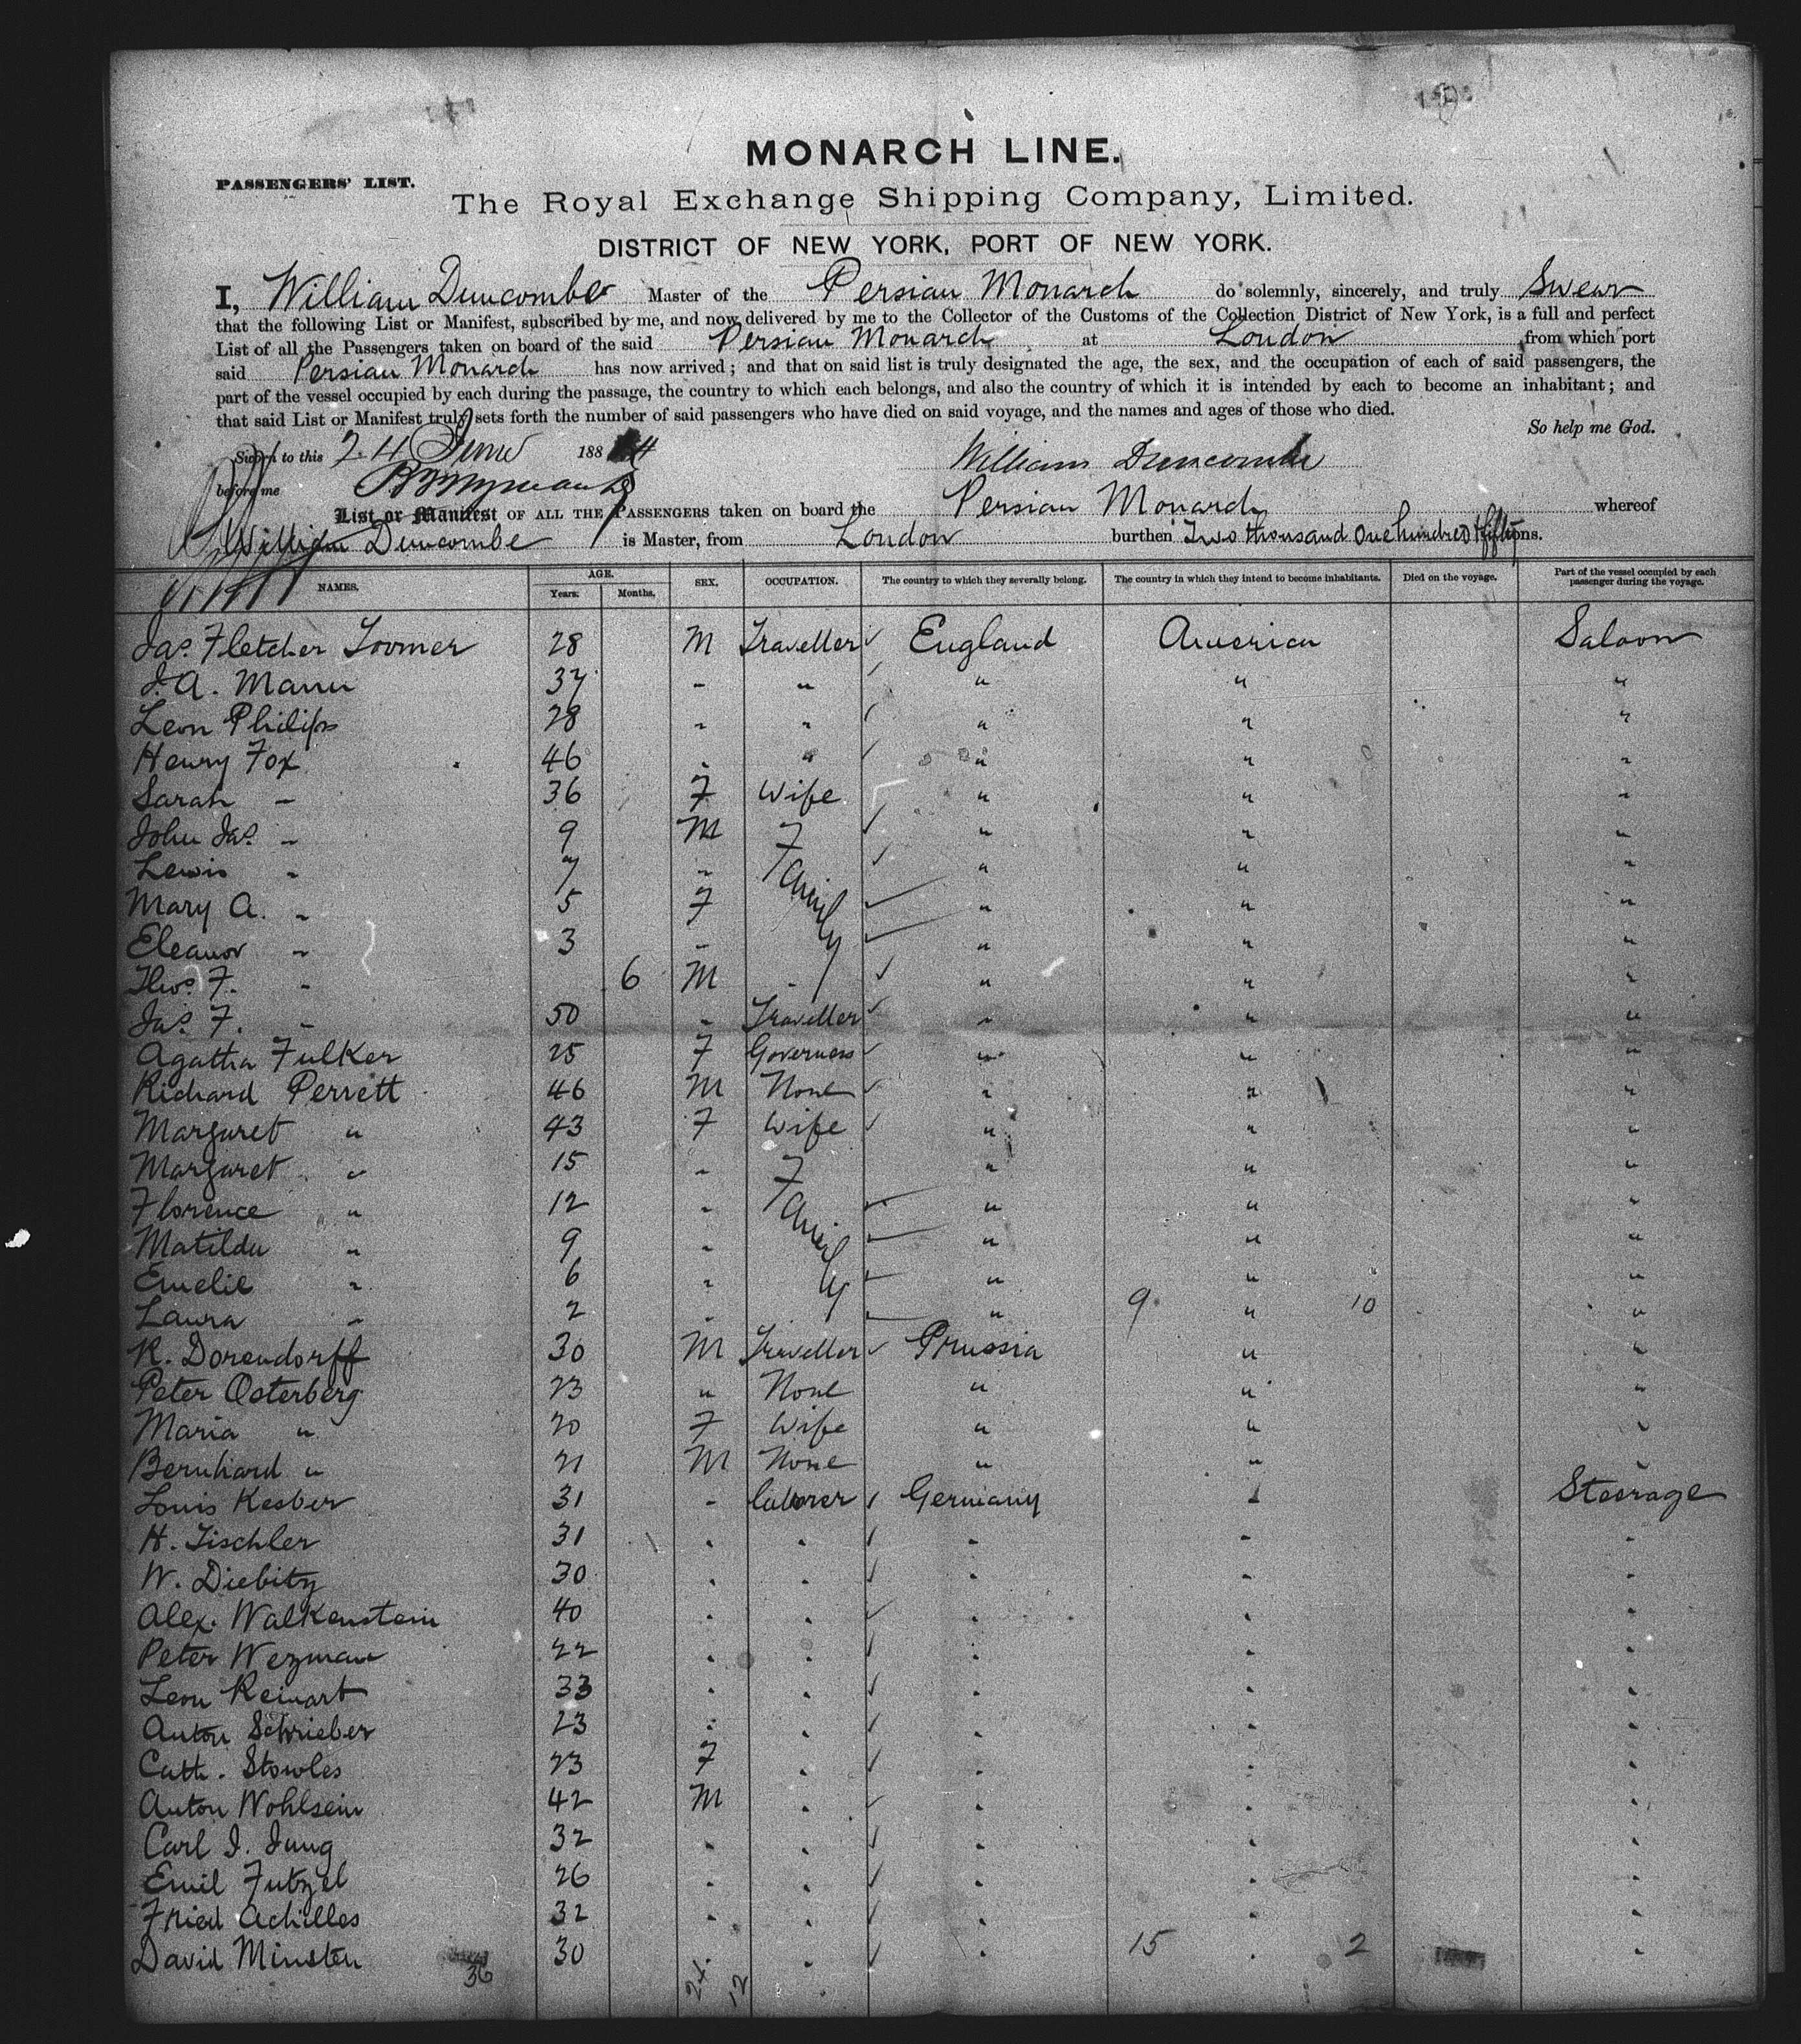 MONARCH LINE.
PASSENGERS' LIST.
The Royal Exchange Shipping Company, Limited.
DISTRICT OF NEW YORK, PORT OF NEW YORK.
I, William Duncombe Master of the Persian Monarch do solemnly, sincerely, and truly Swear
that the following List or Manifest, subscribed by me, and now delivered by me to the Collector of the Customs of the Collection District of New York, is a full and perfect
List of all the Passengers taken on board of the said Persian Monarch at London from which port
said Persian Monarch has now arrived; and that on said list is truly designated the age, the sex, and the occupation of each of said passengers, the
part of the vessel occupied by each during the passage, the country to which each belongs, and also the country of which it is intended by each to become an inhabitant; and
that said List or Manifest truly sets forth the number of said passengers who have died on said voyage, and the names and ages of those who died.
So help me God.
Sworn to this 24 June 1884 William Duncombe
before me
List or Manifest OF ALL THE PASSENGERS taken on board the Persian Monarch whereof
William Duncombe is Master, from London burthen Two thousand One hundred & fifty tons.
NAMES. AGE. Years. Months. SEX. OCCUPATION. The country to which they severally belong. The country in which they intend to become inhabitants. Died on the voyage. Part of the vessel occupied by each passenger during the voyage.
Jas. Fletcher Toomer 28 M Traveller ✓ England America Saloon
J. A. Mann 37 - " ✓ " " "
Leon Philips 28 " " ✓ " " "
Henry Fox 46 " " ✓ " " "
Sarah - 36 F Wife " " "
John Jas. - 9 M Family ✓ " " "
Lewis - 7 " ✓ " " "
Mary A. - 5 F ✓ " " "
Eleanor - 3 - ✓ " " "
Thos. F. - 6 M ✓ " " "
Jas. F. - 50 - Traveller ✓ " " "
Agatha Fulker 25 F Governess ✓ " " "
Richard Perrett 46 M None ✓ " " "
Margaret " 43 F Wife ✓ " " "
Margaret " 15 " Family " " "
Florence " 12 " ✓ " " "
Matilda " 9 " ✓ " " "
Emelie " 6 " ✓ " " "
Laura " 2 " ✓ " 9 " 10 "
R. Dorendorff 30 M Traveller ✓ Prussia " "
Peter Osterberg 23 " None " " "
Maria " 20 F Wife " " "
Bernhard " 21 M None " " "
Louis Kesber 31 - laborer ✓ Germany " Steerage
H. Tischler 31 " " ✓ " " "
W. Diebitz 30 " " ✓ " " "
Alex. Walkenstein 40 " " ✓ " " "
Peter Wezman 22 " " ✓ " " "
Leon Reinart 33 " " ✓ " " "
Anton Schrieber 23 " " ✓ " " "
Cath. Stowles 23 F " ✓ " " "
Anton Wohlsein 42 M " ✓ " " "
Carl I. Jung 32 " " ✓ " " "
Emil Futzel 26 " " ✓ " " "
Fried Achilles 32 " " ✓ " " "
David Minsten 30 " ✓ " 15 " 2 "
36 24 12